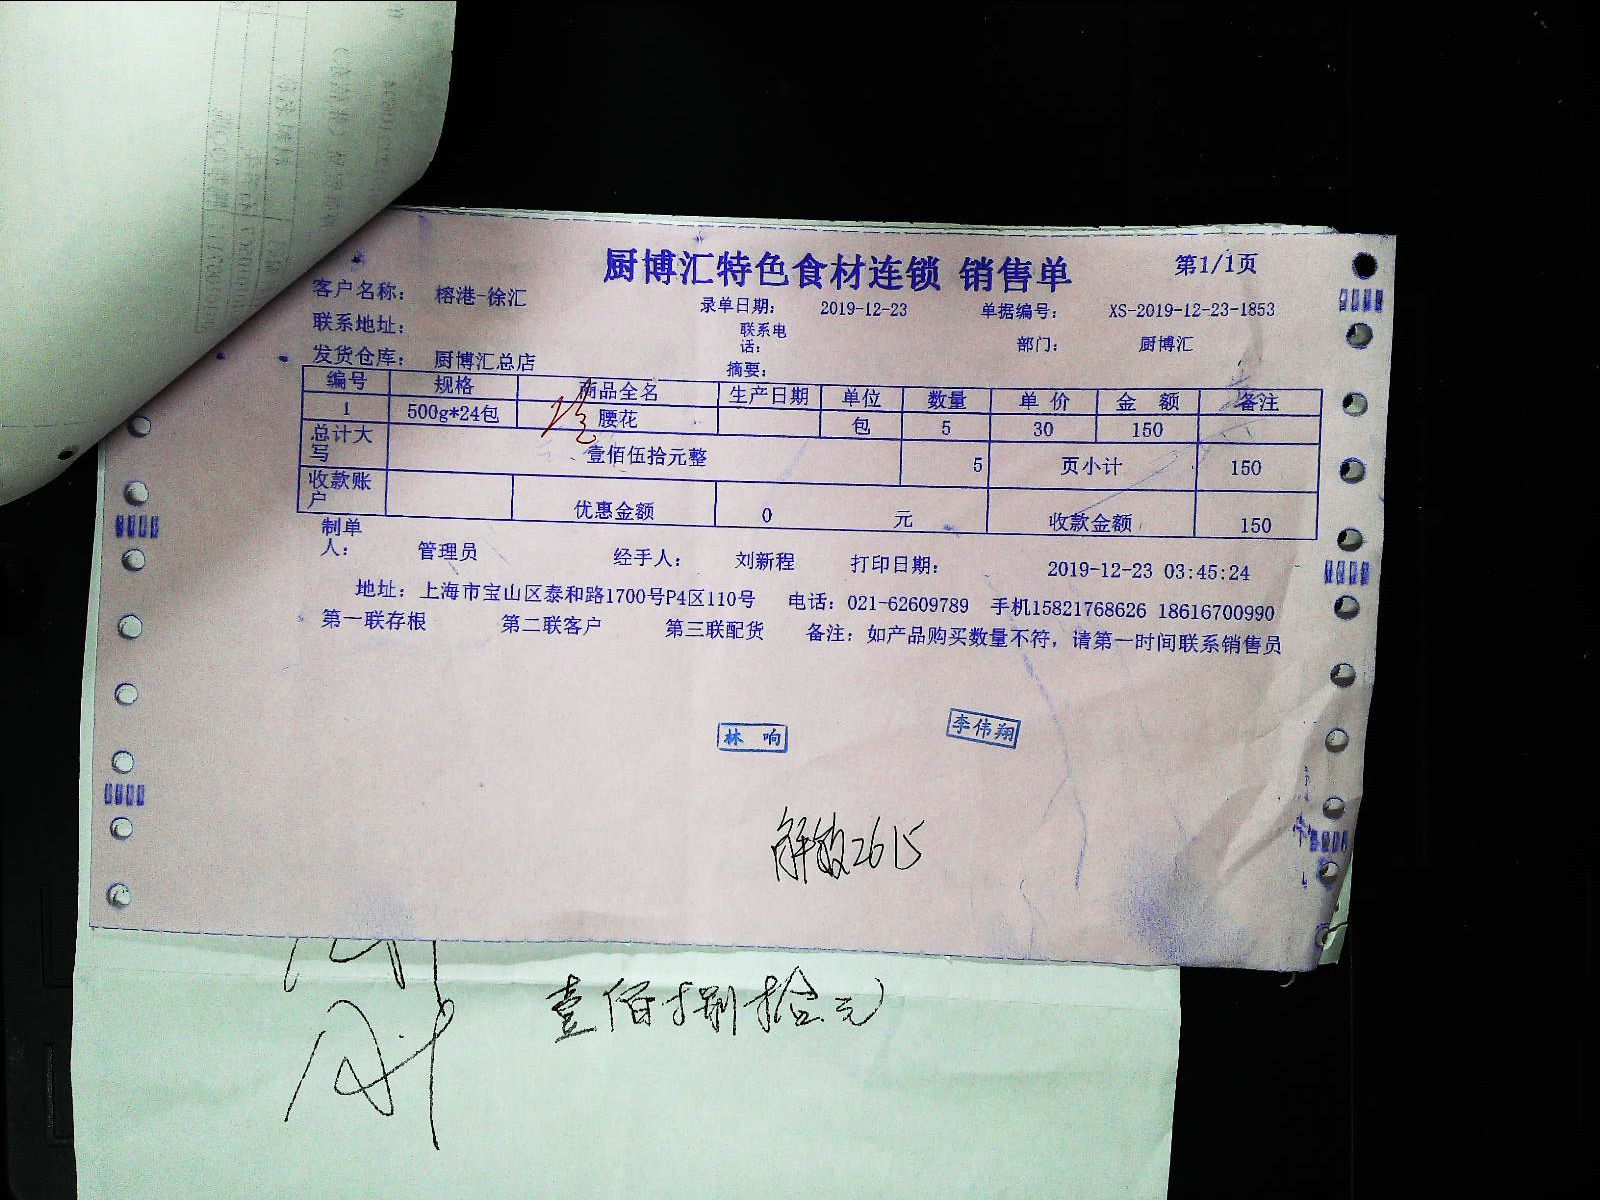 厨博汇特色食材连锁 销售单 第1/1页
客户名称： 榕港-徐汇 录单日期： 2019-12-23 单据编号： XS-2019-12-23-1853
联系地址： 联系电话： 部门： 厨博汇
发货仓库： 厨博汇总店 摘要：
编号 规格 商品全名 生产日期 单位 数量 单价 金额 备注
1 500g*24包 腰花 包 5 30 150
总计大写 壹佰伍拾元整 5 页小计 150
收款账户 优惠金额 0 元 收款金额 150
制单人： 管理员 经手人： 刘新程 打印日期： 2019-12-23 03:45:24
地址：上海市宝山区泰和路1700号P4区110号 电话：021-62609789 手机15821768626 18616700990
第一联存根 第二联客户 第三联配货 备注：如产品购买数量不符，请第一时间联系销售员
林 响 李伟翔
解放2615
壹佰捌拾元